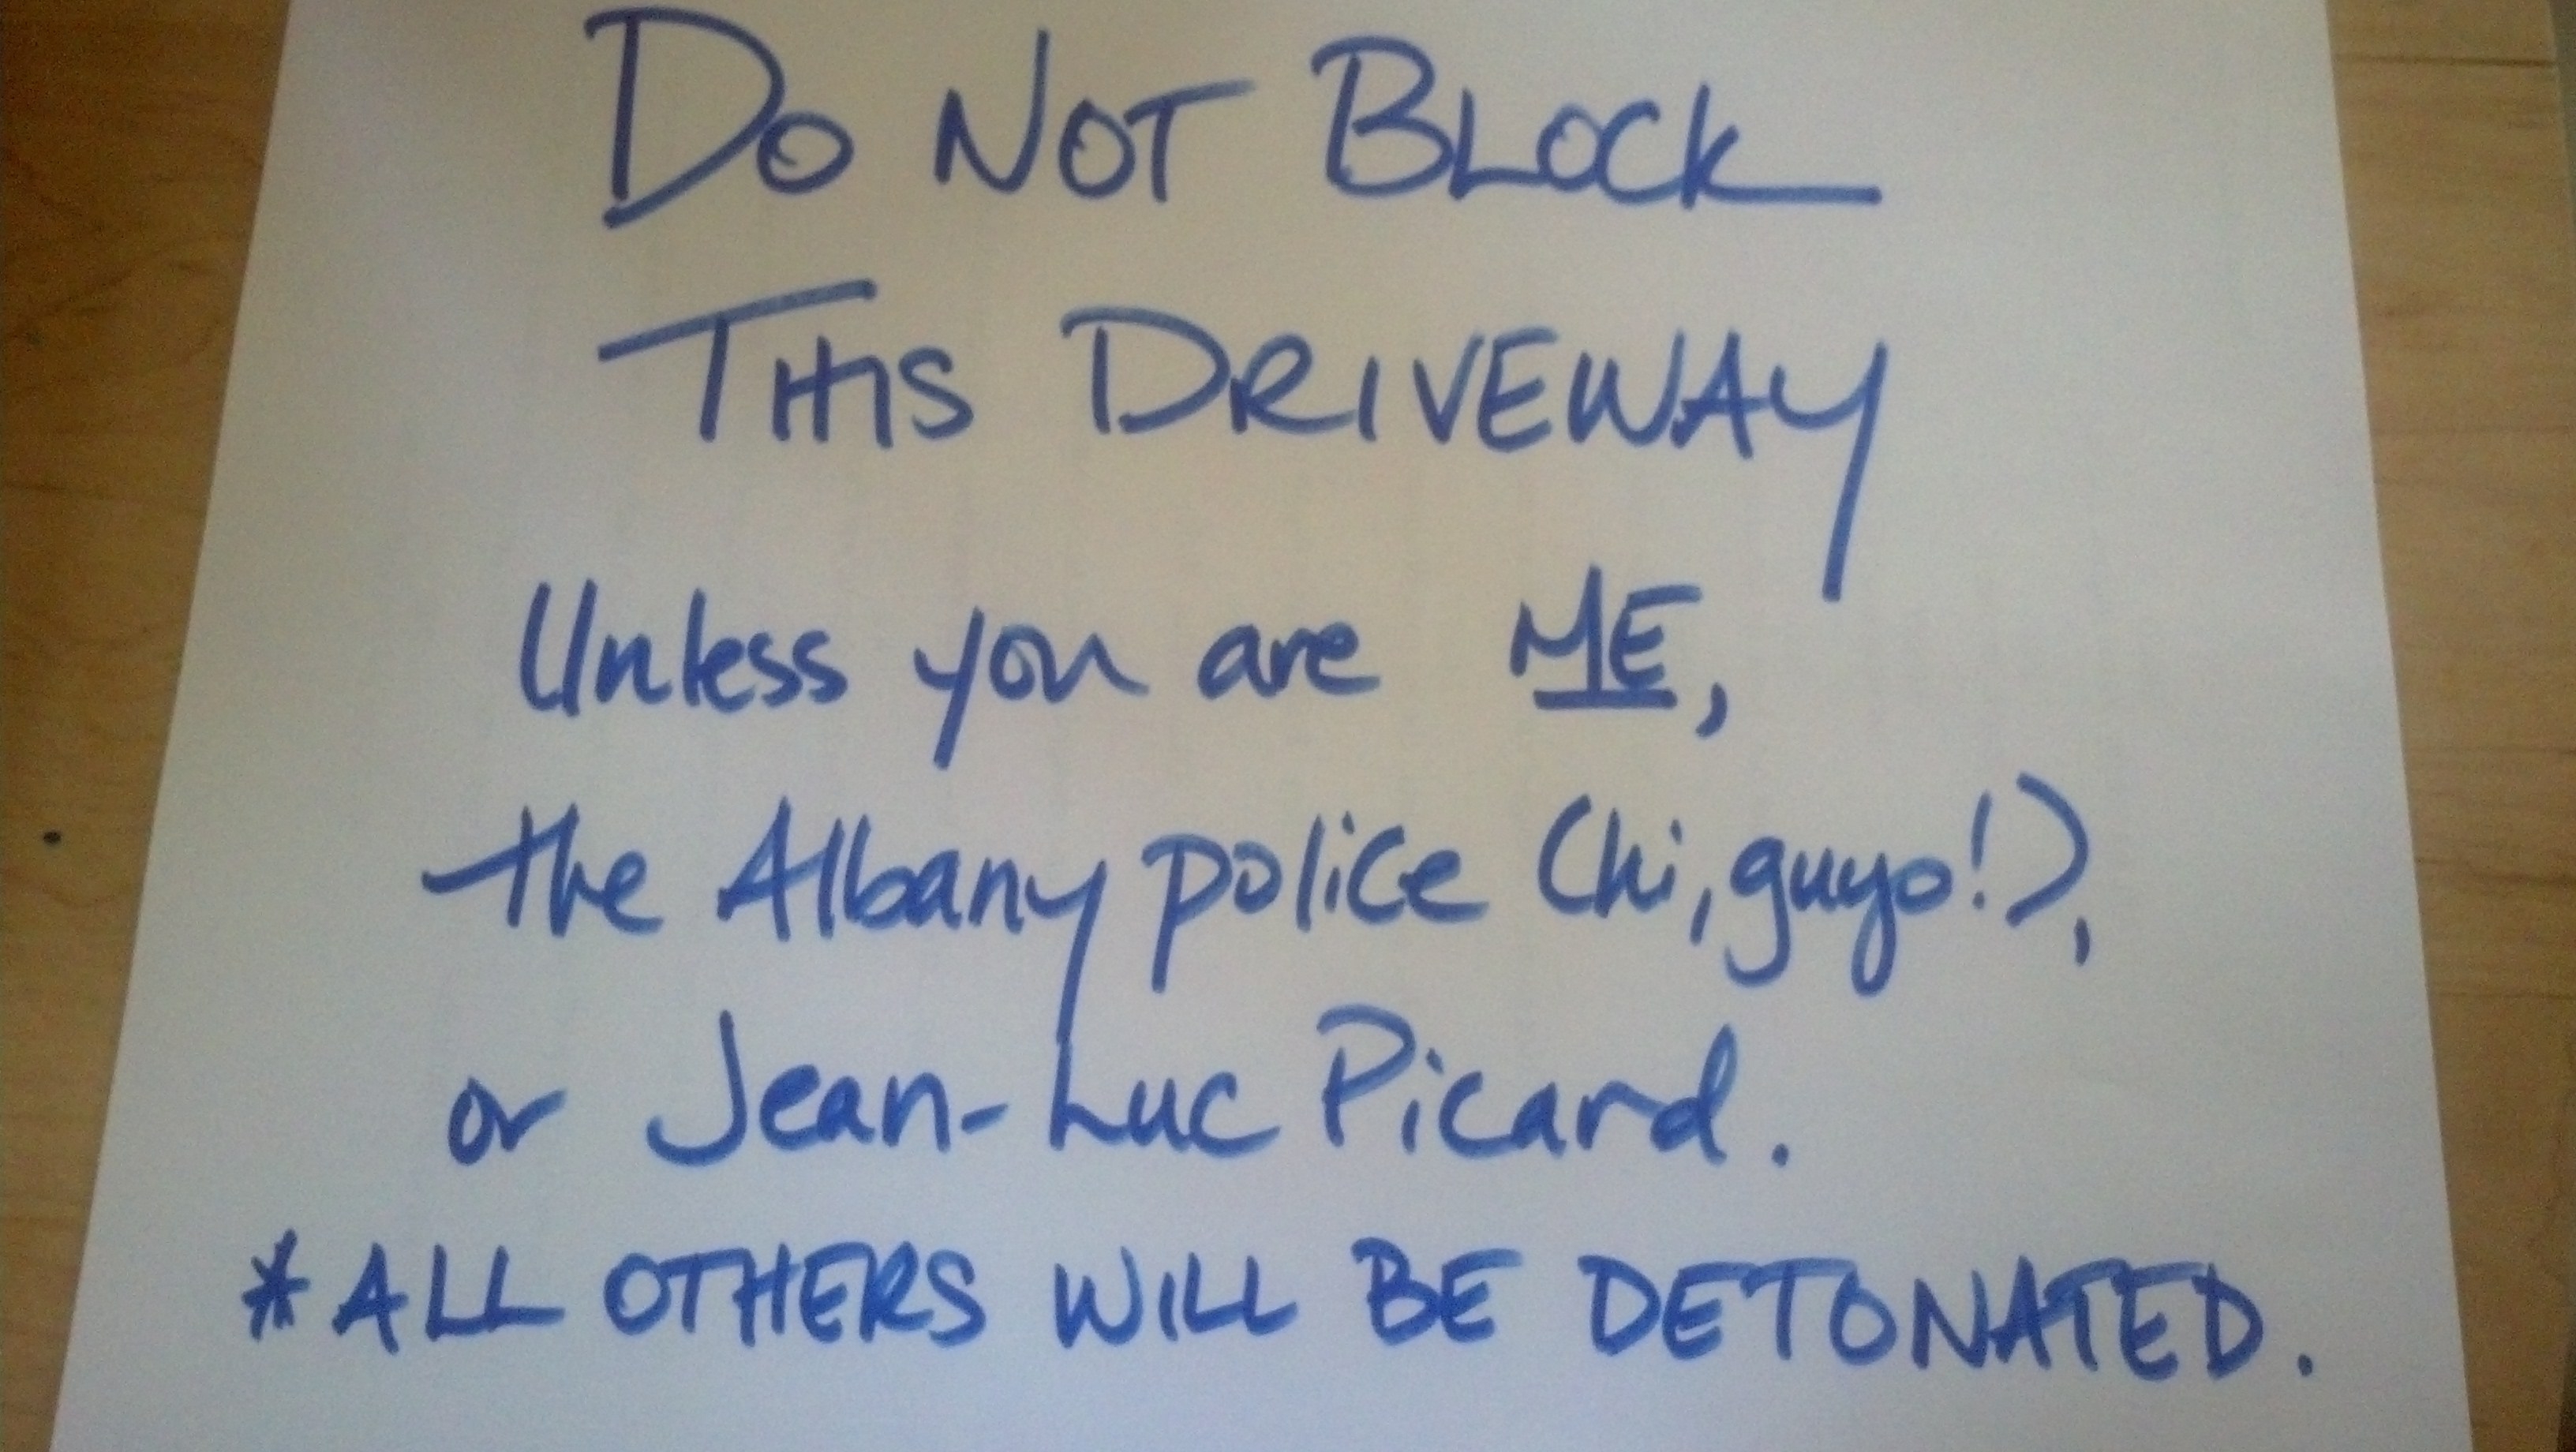 DO NOT BLOCK
THIS DRIVEWAY
Unless you are ME,
the Albany police (hi, guyo!),
or Jean-Luc Picard.
*ALL OTHERS WILL BE DETONATED.